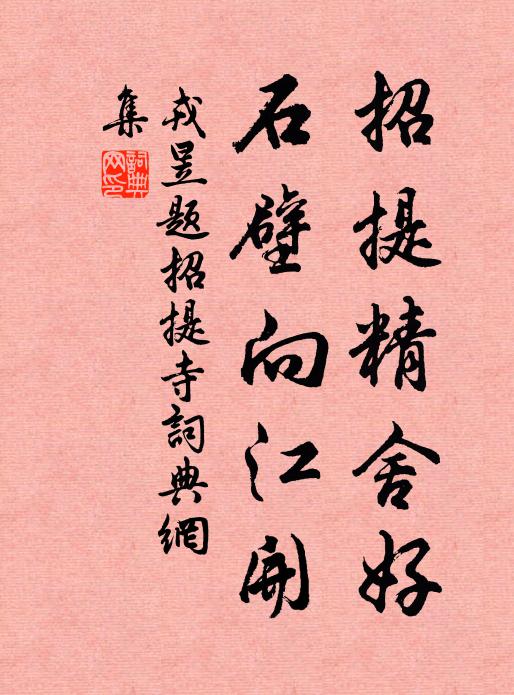 招提精舍好
石壁向江開
戎昱题招提寺詞典網
集
詞典
网印